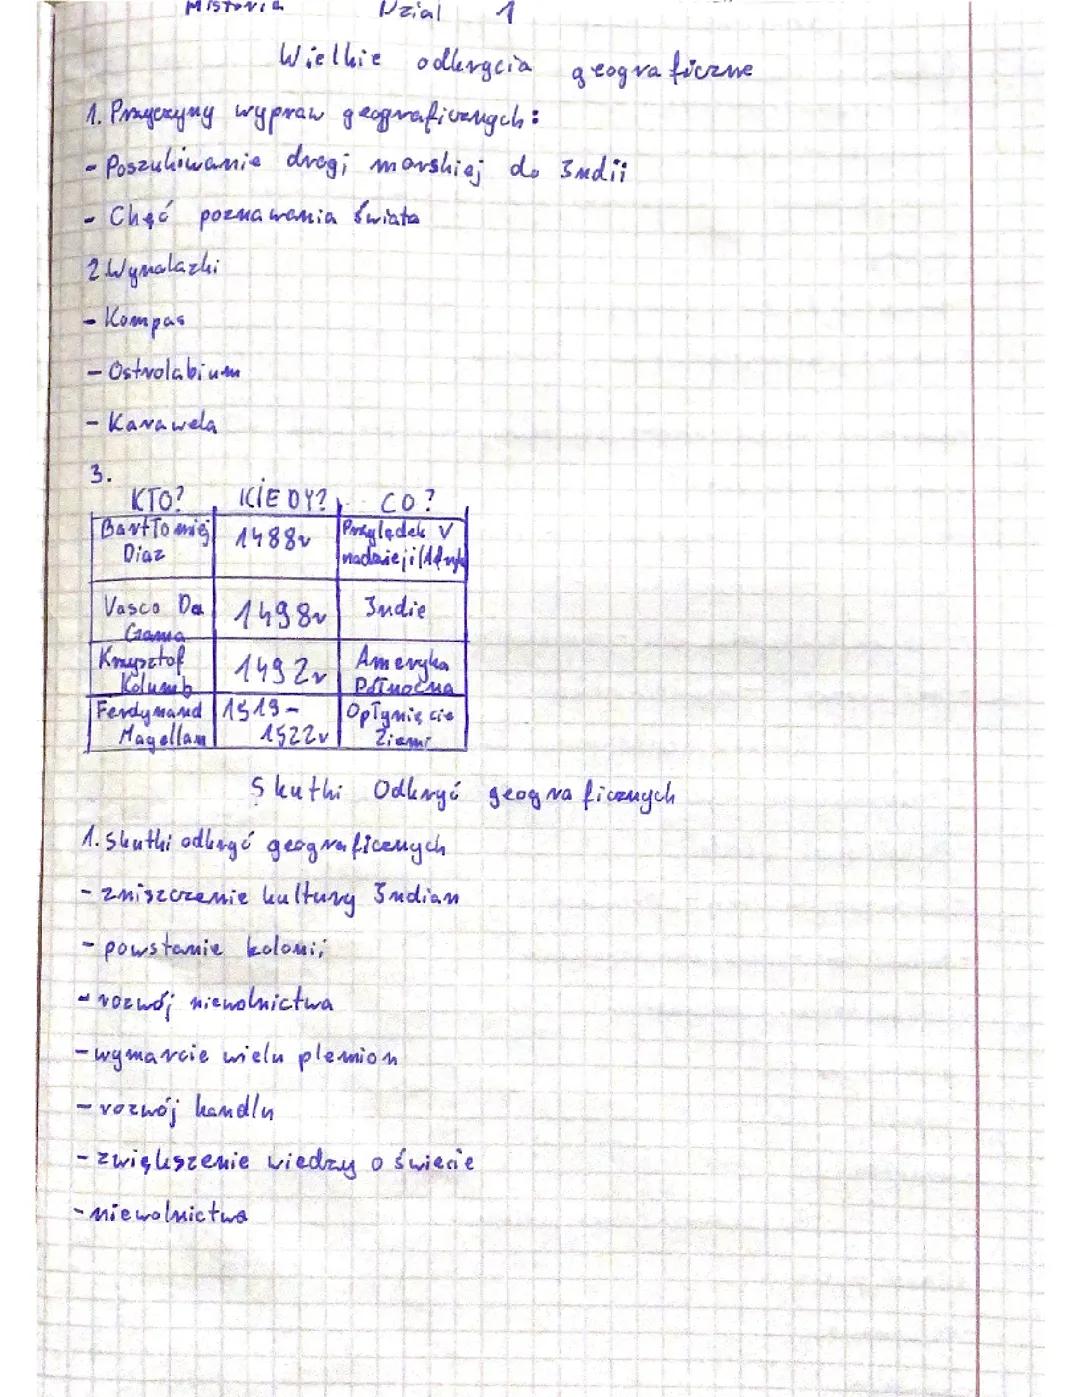 Historia Dział 1
Wielkie odkrycia geograficzne
1. Przyczyny wypraw geograficznych:
- Poszukiwanie drogi morskiej do Indii
- Chęć poznawania świata
2. Wynalazki
- Kompas
- Ostrolabium
- Karawela
3.
KTO? KIEDY? CO?
Bartłomiej Diaz 1488r Przylądek
nadzieji
Vasco Da Gama 1498r Indie
Krzysztof Kolumb 1492r Ameryka Północna
Ferdynand Magellan 1519-1522r Opłynięcie Ziemi
Skutki Odkryć geograficznych
1. Skutki odkryć geograficznych
- zniszczenie kultury Indian
- powstanie kolonii
- rozwój niewolnictwa
- wymarcie wielu plemion
- rozwój handlu
- zwiększenie wiedzy o świecie
- niewolnictwa